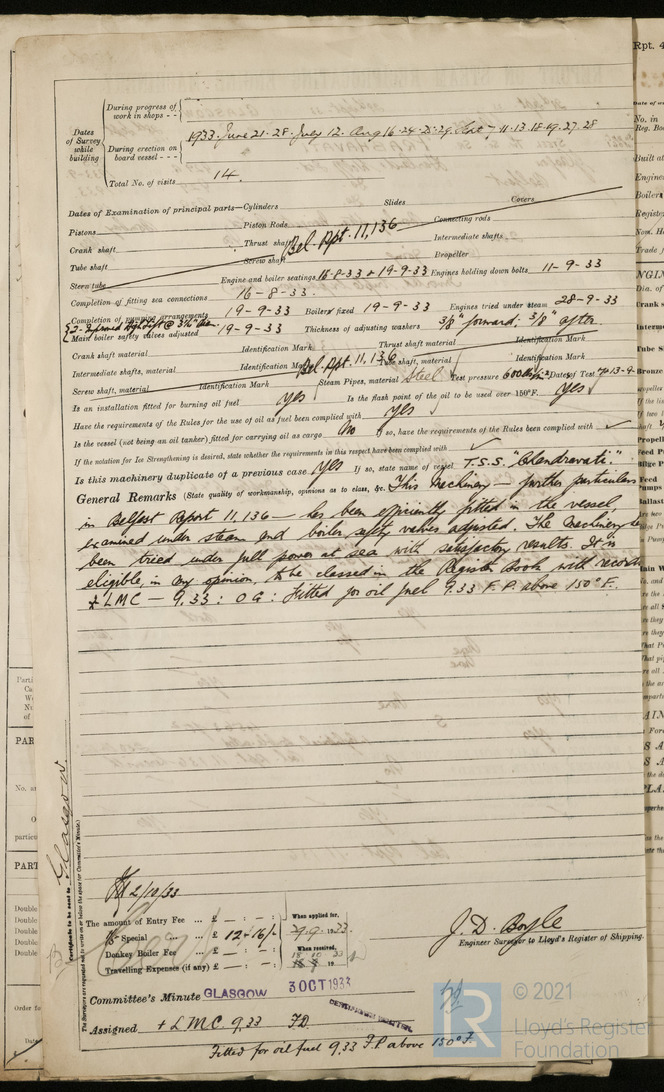 During progress of work in shops - -
Dates of Survey while building
During erection on board vessel - - -
1933. June 21. 28. July 12. Aug 16. 24. 25. 29. Sept 7. 11. 13. 18. 19. 27. 28
Total No. of visits 14.
Dates of Examination of principal parts—Cylinders Slides Covers
Pistons Piston Rods Connecting rods
Bel. Rpt. 11,136
Crank shaft Thrust shaft Intermediate shafts
Tube shaft Screw shaft Propeller
Stern tube Engine and boiler seatings 16-8-33 & 19-9-33 Engines holding down bolts 11-9-33
Completion of fitting sea connections 16-8-33.
Completion of pumping arrangements 19-9-33 Boilers fixed 19-9-33 Engines tried under steam 28-9-33
Main boiler safety valves adjusted 19-9-33 Thickness of adjusting washers 3/8" forward: 3/8" after.
Crank shaft material Identification Mark Thrust shaft material Identification Mark
Bel. Rpt. 11,136
Intermediate shafts, material Identification Marks Tube shaft, material Identification Mark
Screw shaft, material Identification Mark Steam Pipes, material Steel Test pressure 600 Date of Test
Is an installation fitted for burning oil fuel yes Is the flash point of the oil to be used over 150°F. yes
Have the requirements of the Rules for the use of oil as fuel been complied with yes
Is the vessel (not being an oil tanker) fitted for carrying oil as cargo No If so, have the requirements of the Rules been complied with ✓
If the notation for Ice Strengthening is desired, state whether the requirements in this respect have been complied with ✓
Is this machinery duplicate of a previous case yes If so, state name of vessel T.S.S. "Chandravati."
General Remarks (State quality of workmanship, opinions as to class, &c. This Machinery – further particulars
in Belfast Report 11,136 – has been efficiently fitted in the vessel
examined under steam and boiler safety valves adjusted. The Machinery
been tried under full power at sea with satisfactory results. It is
eligible, in my opinion, to be classed in the Register Book with record
+ LMC – 9,33 : OG : Fitted for oil fuel 9.33 F.P. above 150°F.
Glasgow
Certificate to be sent to
The Surveyors are requested not to write on or below the space for Committee's Minute.
2/10/33
The amount of Entry Fee ... £ — : — : When applied for,
Special ... £ 12 : 16/- 29.9.1933.
Donkey Boiler Fee ... £ — : — : When received,
Travelling Expenses (if any) £ — : — : 19
J. D. Boyle
Engineer Surveyor to Lloyd's Register of Shipping.
Committee's Minute GLASGOW 3 OCT 1933
Assigned + LMC. 9,33 FD.
Fitted for oil fuel 9,33 F.P above 150°F.
© 2021
Lloyd's Register
Foundation
Rpt. 4